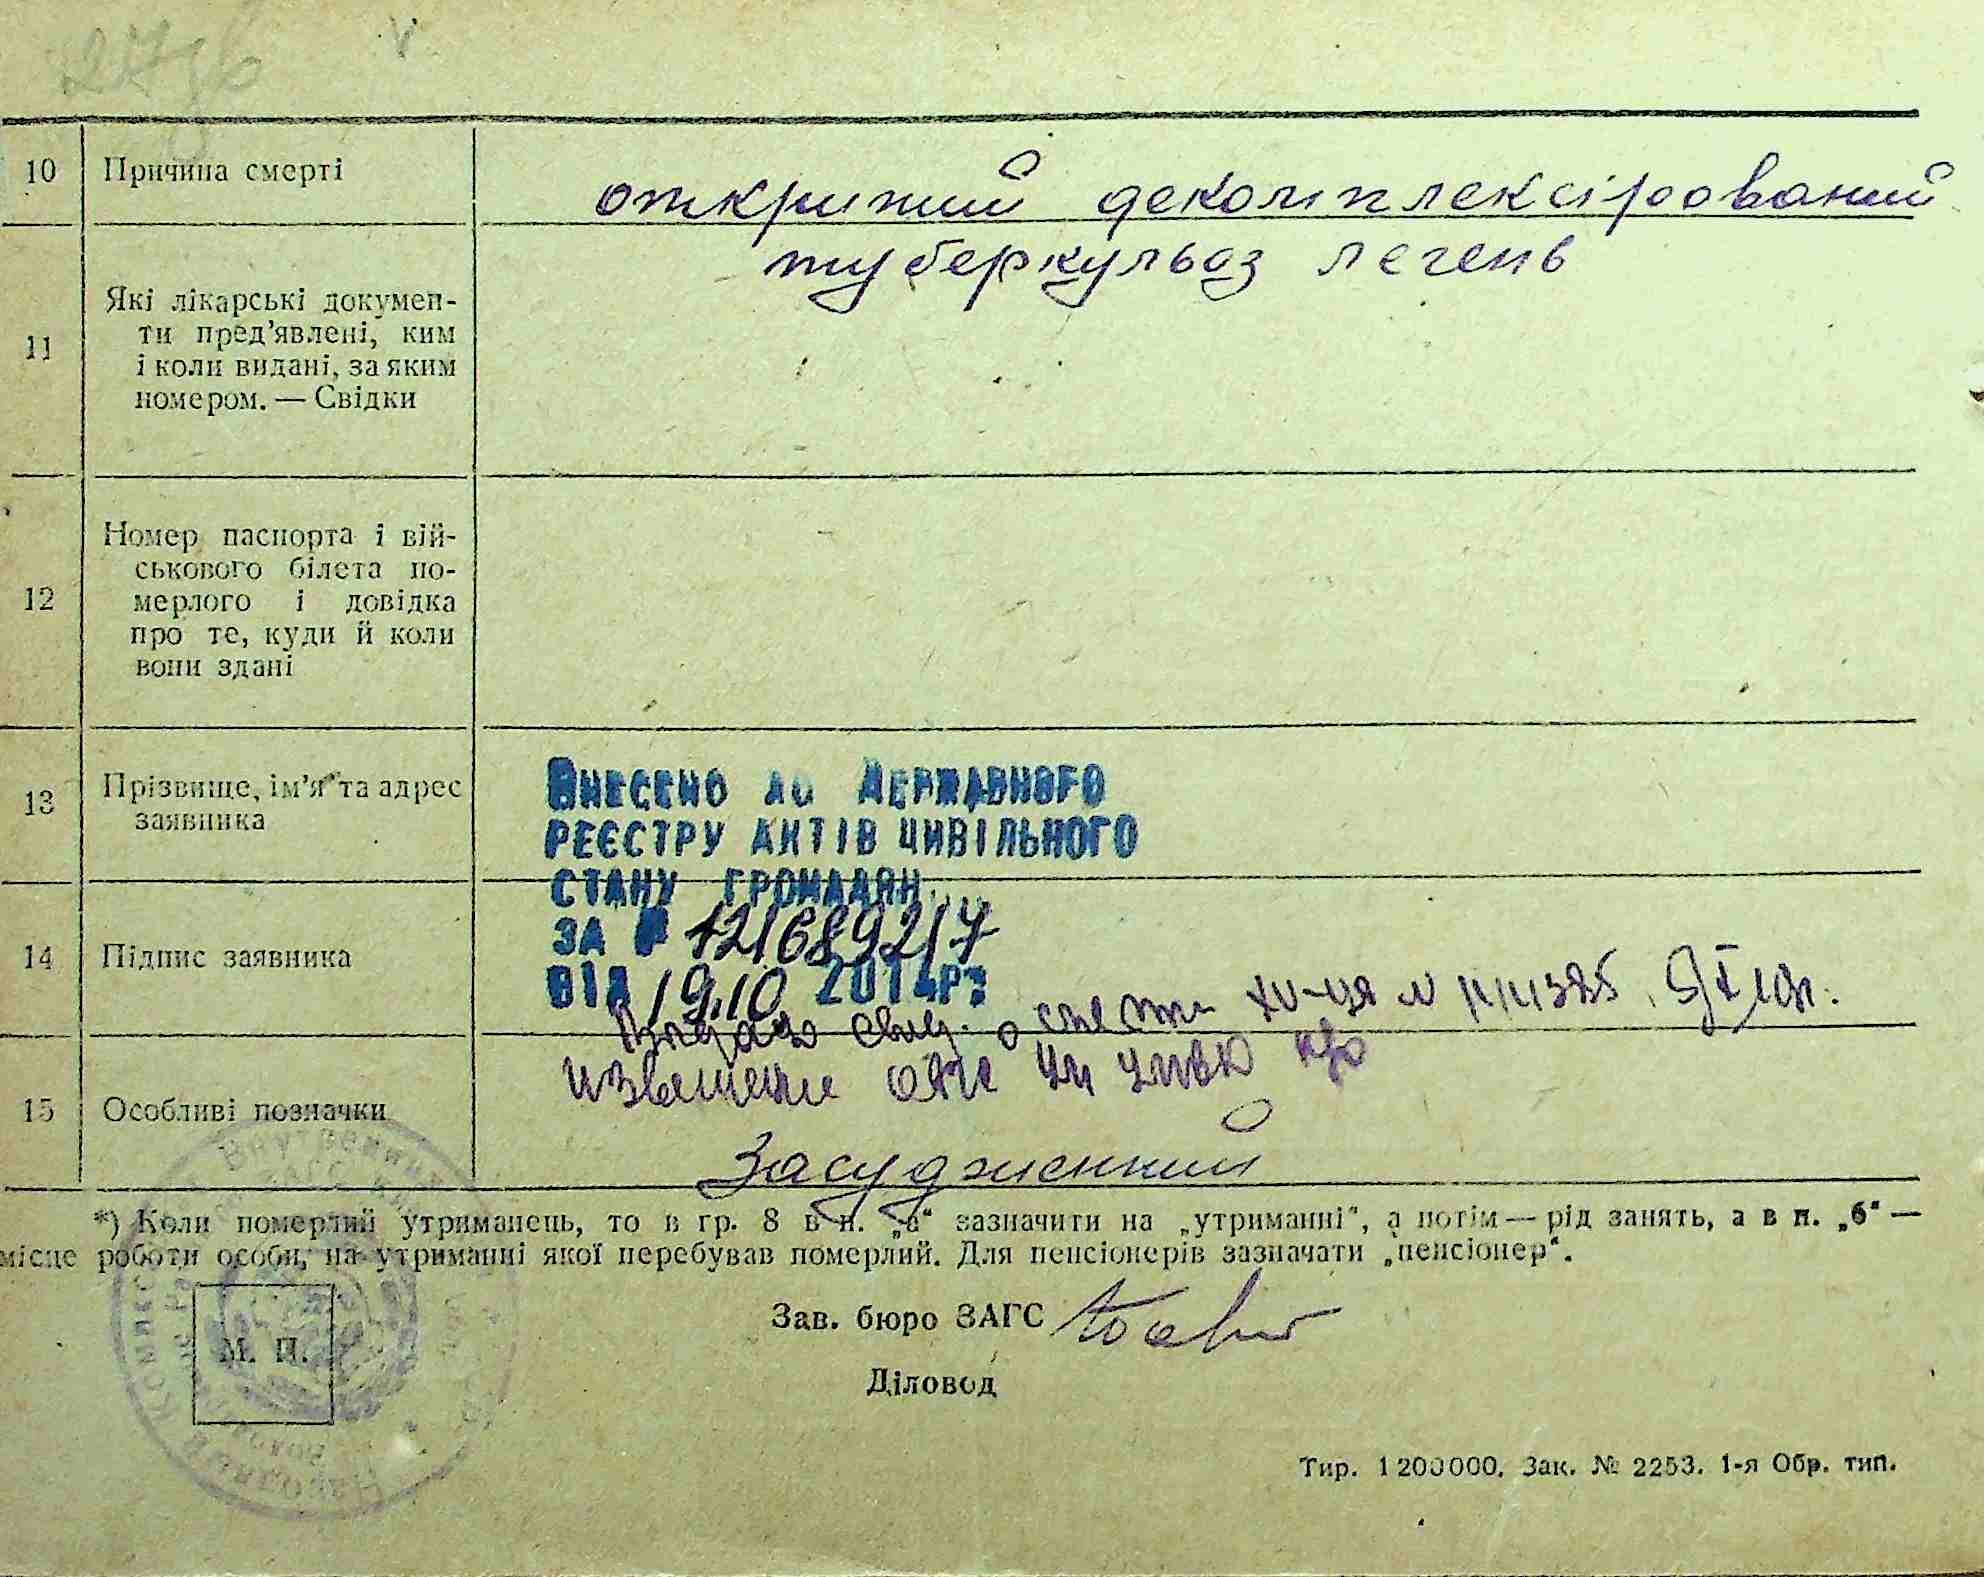 10 Причина смерті
открытий декомплексірований
туберкульоз легень
11 Які лікарські докумен-
ти пред'явлені, ким
і коли видані, за яким
номером. — Свідки
12 Номер паспорта і вій-
ськового білета по-
мерлого і довідка
про те, куди й коли
вони здані
13 Прізвище, ім'я та адрес
заявника
ВНЕСЕНО ДО ДЕРЖАВНОГО
РЕЄСТРУ АКТІВ ЦИВІЛЬНОГО
СТАНУ ГРОМАДЯН
ЗА № 12/6892/7
ВІД 19.10 2014р.
14 Підпис заявника
о смерти
извещение
15 Особливі позначки
Засудженний
*) Коли померлий утриманець, то в гр. 8 в п. „а“ зазначити на „утриманні“, а потім — рід занять, а в п. „б“ —
місце роботи особи, на утриманні якої перебував померлий. Для пенсіонерів зазначати „пенсіонер“.
М. П.
Зав. бюро ЗАГС
Діловод
Тир. 1 200 000. Зак. № 2253. 1-я Обр. тип.